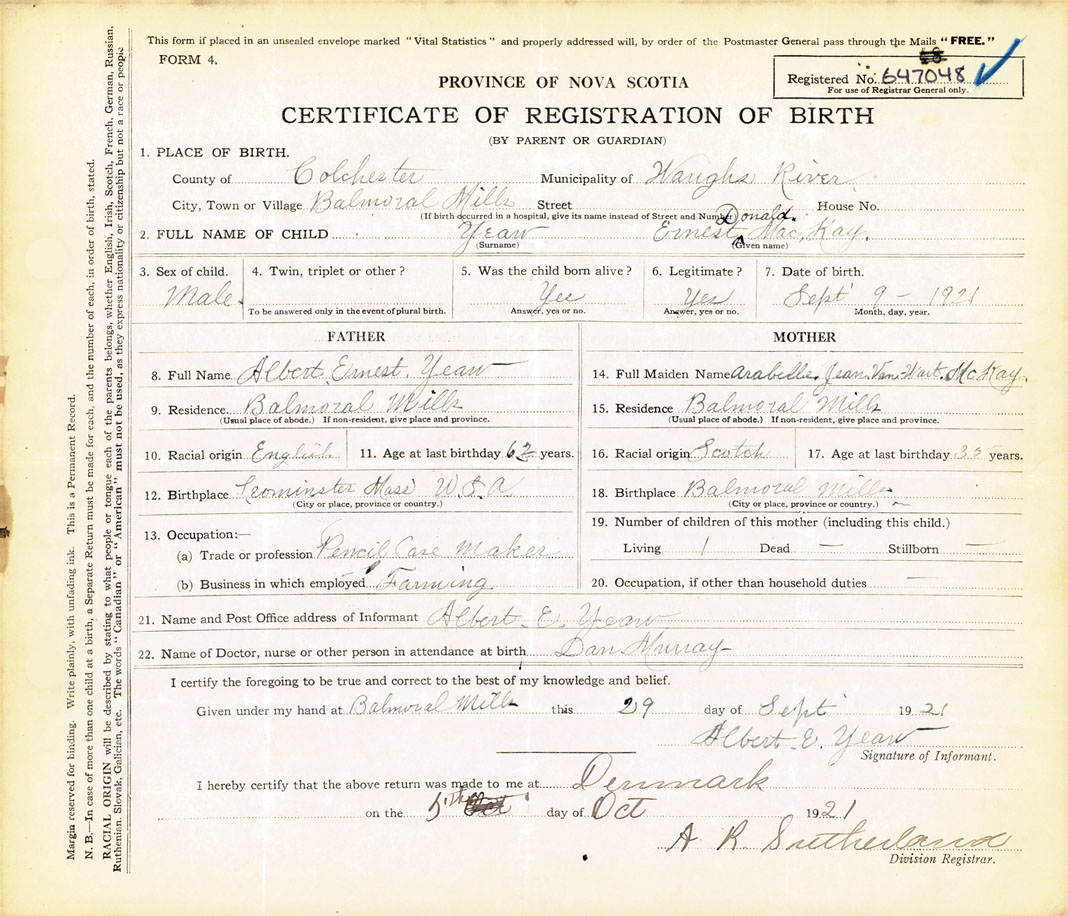 This form if placed in an unsealed envelope marked "Vital Statistics" and properly addressed will, by order of the Postmaster General pass through the Mails "FREE."
FORM 4.
Registered No. 647048
For use of Registrar General only.
PROVINCE OF NOVA SCOTIA
CERTIFICATE OF REGISTRATION OF BIRTH
(BY PARENT OR GUARDIAN)
1. PLACE OF BIRTH.
County of Colchester Municipality of Waughs River
City, Town or Village Balmoral Mills Street House No.
(If birth occurred in a hospital, give its name instead of Street and Number) Donald.
2. FULL NAME OF CHILD Yeaw Ernest Mac Kay.
(Surname) (Given name)
3. Sex of child. 4. Twin, triplet or other? 5. Was the child born alive? 6. Legitimate? 7. Date of birth.
Male. Yes Yes Sept 9 - 1921
To be answered only in the event of plural birth. Answer, yes or no. Answer, yes or no. Month, day, year.
FATHER
8. Full Name Albert Ernest Yeaw
9. Residence Balmoral Mills
(Usual place of abode.) If non-resident, give place and province.
10. Racial origin English 11. Age at last birthday 62 years.
12. Birthplace Leominster Mass U.S.A
(City or place, province or country.)
13. Occupation:—
(a) Trade or profession Pencil Case Maker
(b) Business in which employed Farming
MOTHER
14. Full Maiden Name Arabelle Jean Van Wart McKay
15. Residence Balmoral Mills
(Usual place of abode.) If non-resident, give place and province.
16. Racial origin Scotch 17. Age at last birthday 35 years.
18. Birthplace Balmoral Mills
(City or place, province or country.)
19. Number of children of this mother (including this child.)
Living 1 Dead — Stillborn —
20. Occupation, if other than household duties —
21. Name and Post Office address of Informant Albert E. Yeaw
22. Name of Doctor, nurse or other person in attendance at birth Dan Murray
I certify the foregoing to be true and correct to the best of my knowledge and belief.
Given under my hand at Balmoral Mills this 29 day of Sept 1921
Albert E. Yeaw
Signature of Informant.
I hereby certify that the above return was made to me at Denmark
on the 5th day of Oct 1921
A R Sutherland
Division Registrar.
Margin reserved for binding. Write plainly, with unfading ink. This is a Permanent Record.
N. B.—In case of more than one child at a birth, a Separate Return must be made for each, and the number of each, in order of birth, stated.
RACIAL ORIGIN will be described by stating to what people or tongue each of the parents belongs, whether English, Irish, Scotch, French, German, Russian,
Ruthenian, Slovak, Galician, etc. The words "Canadian" or "American" must not be used, as they express nationality or citizenship but not a race or people